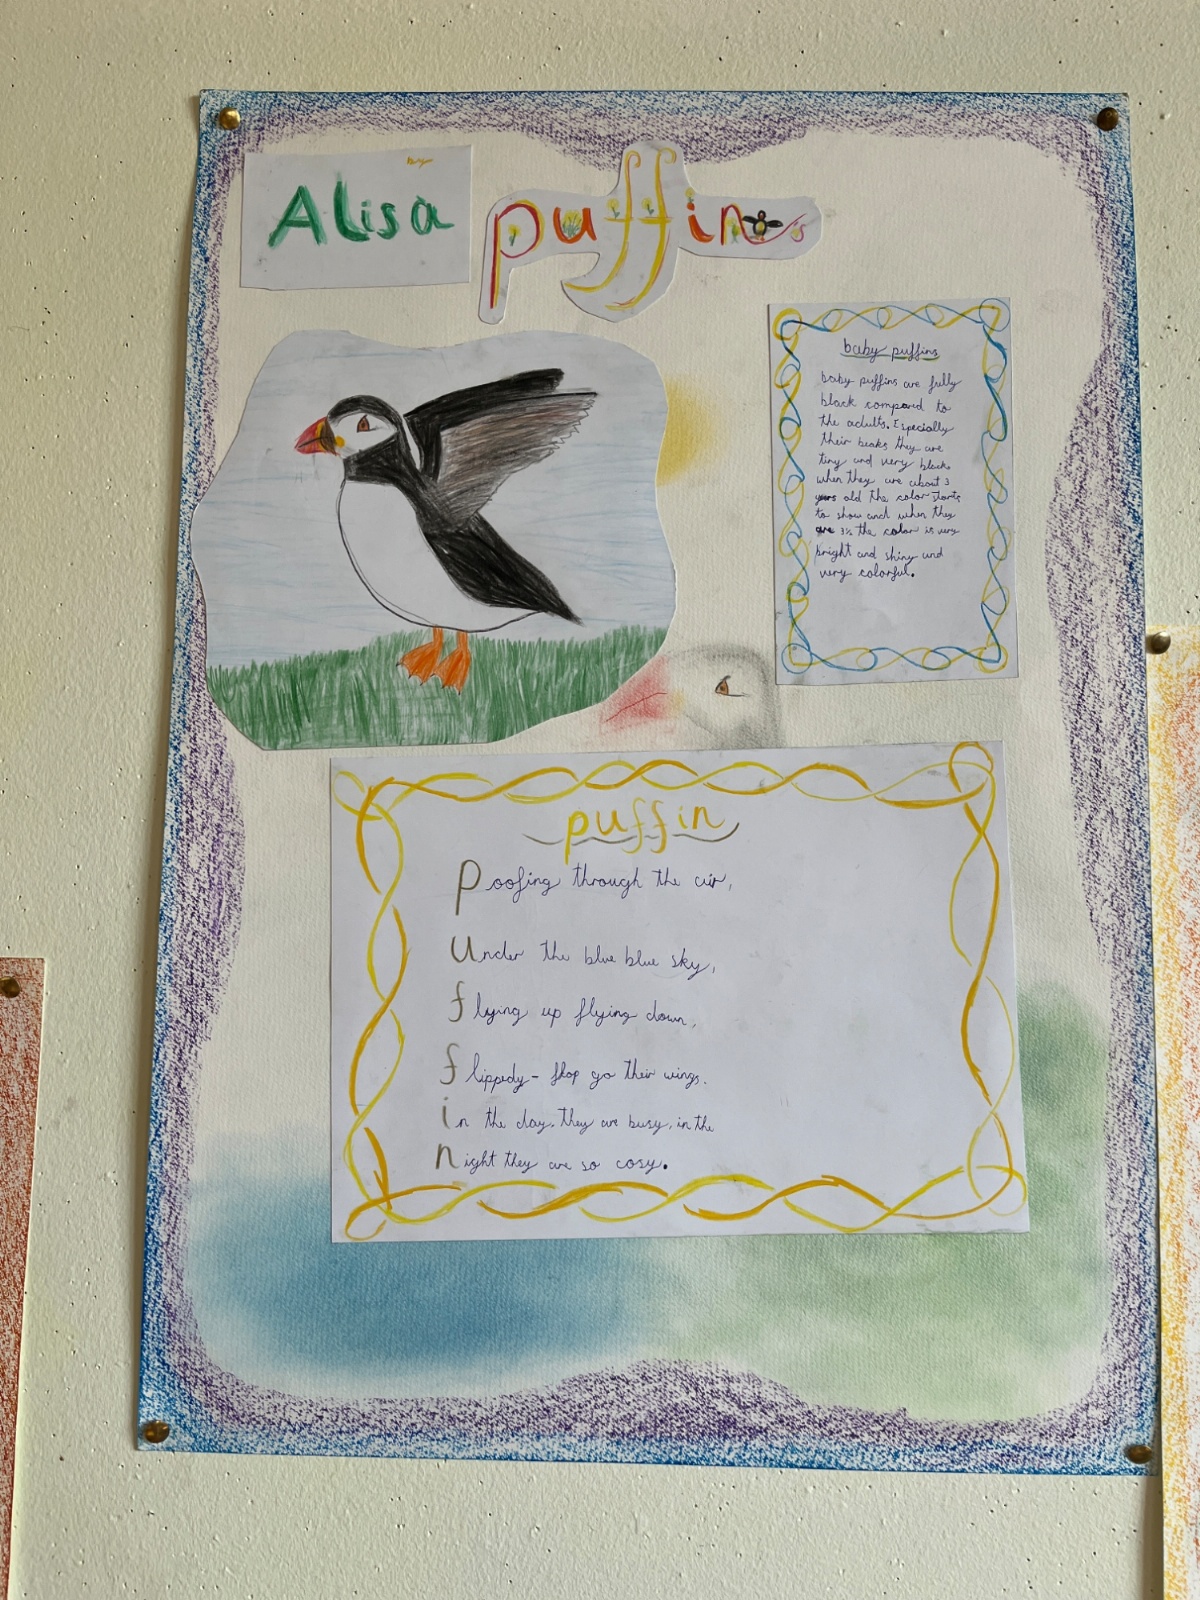 by
Alisa
puffins
baby puffins
baby puffins are fully
black compared to
the adults. Especially
their beaks they are
tiny and very black.
when they are about 3
years old the color starts
to show and when they
are 3½ the color is very
bright and shiny and
very colorful.
puffin
Poofing through the air,
Under the blue blue sky,
flying up flying down,
flippedy-flop go their wings.
in the day, they are busy, in the
night they are so cosy.